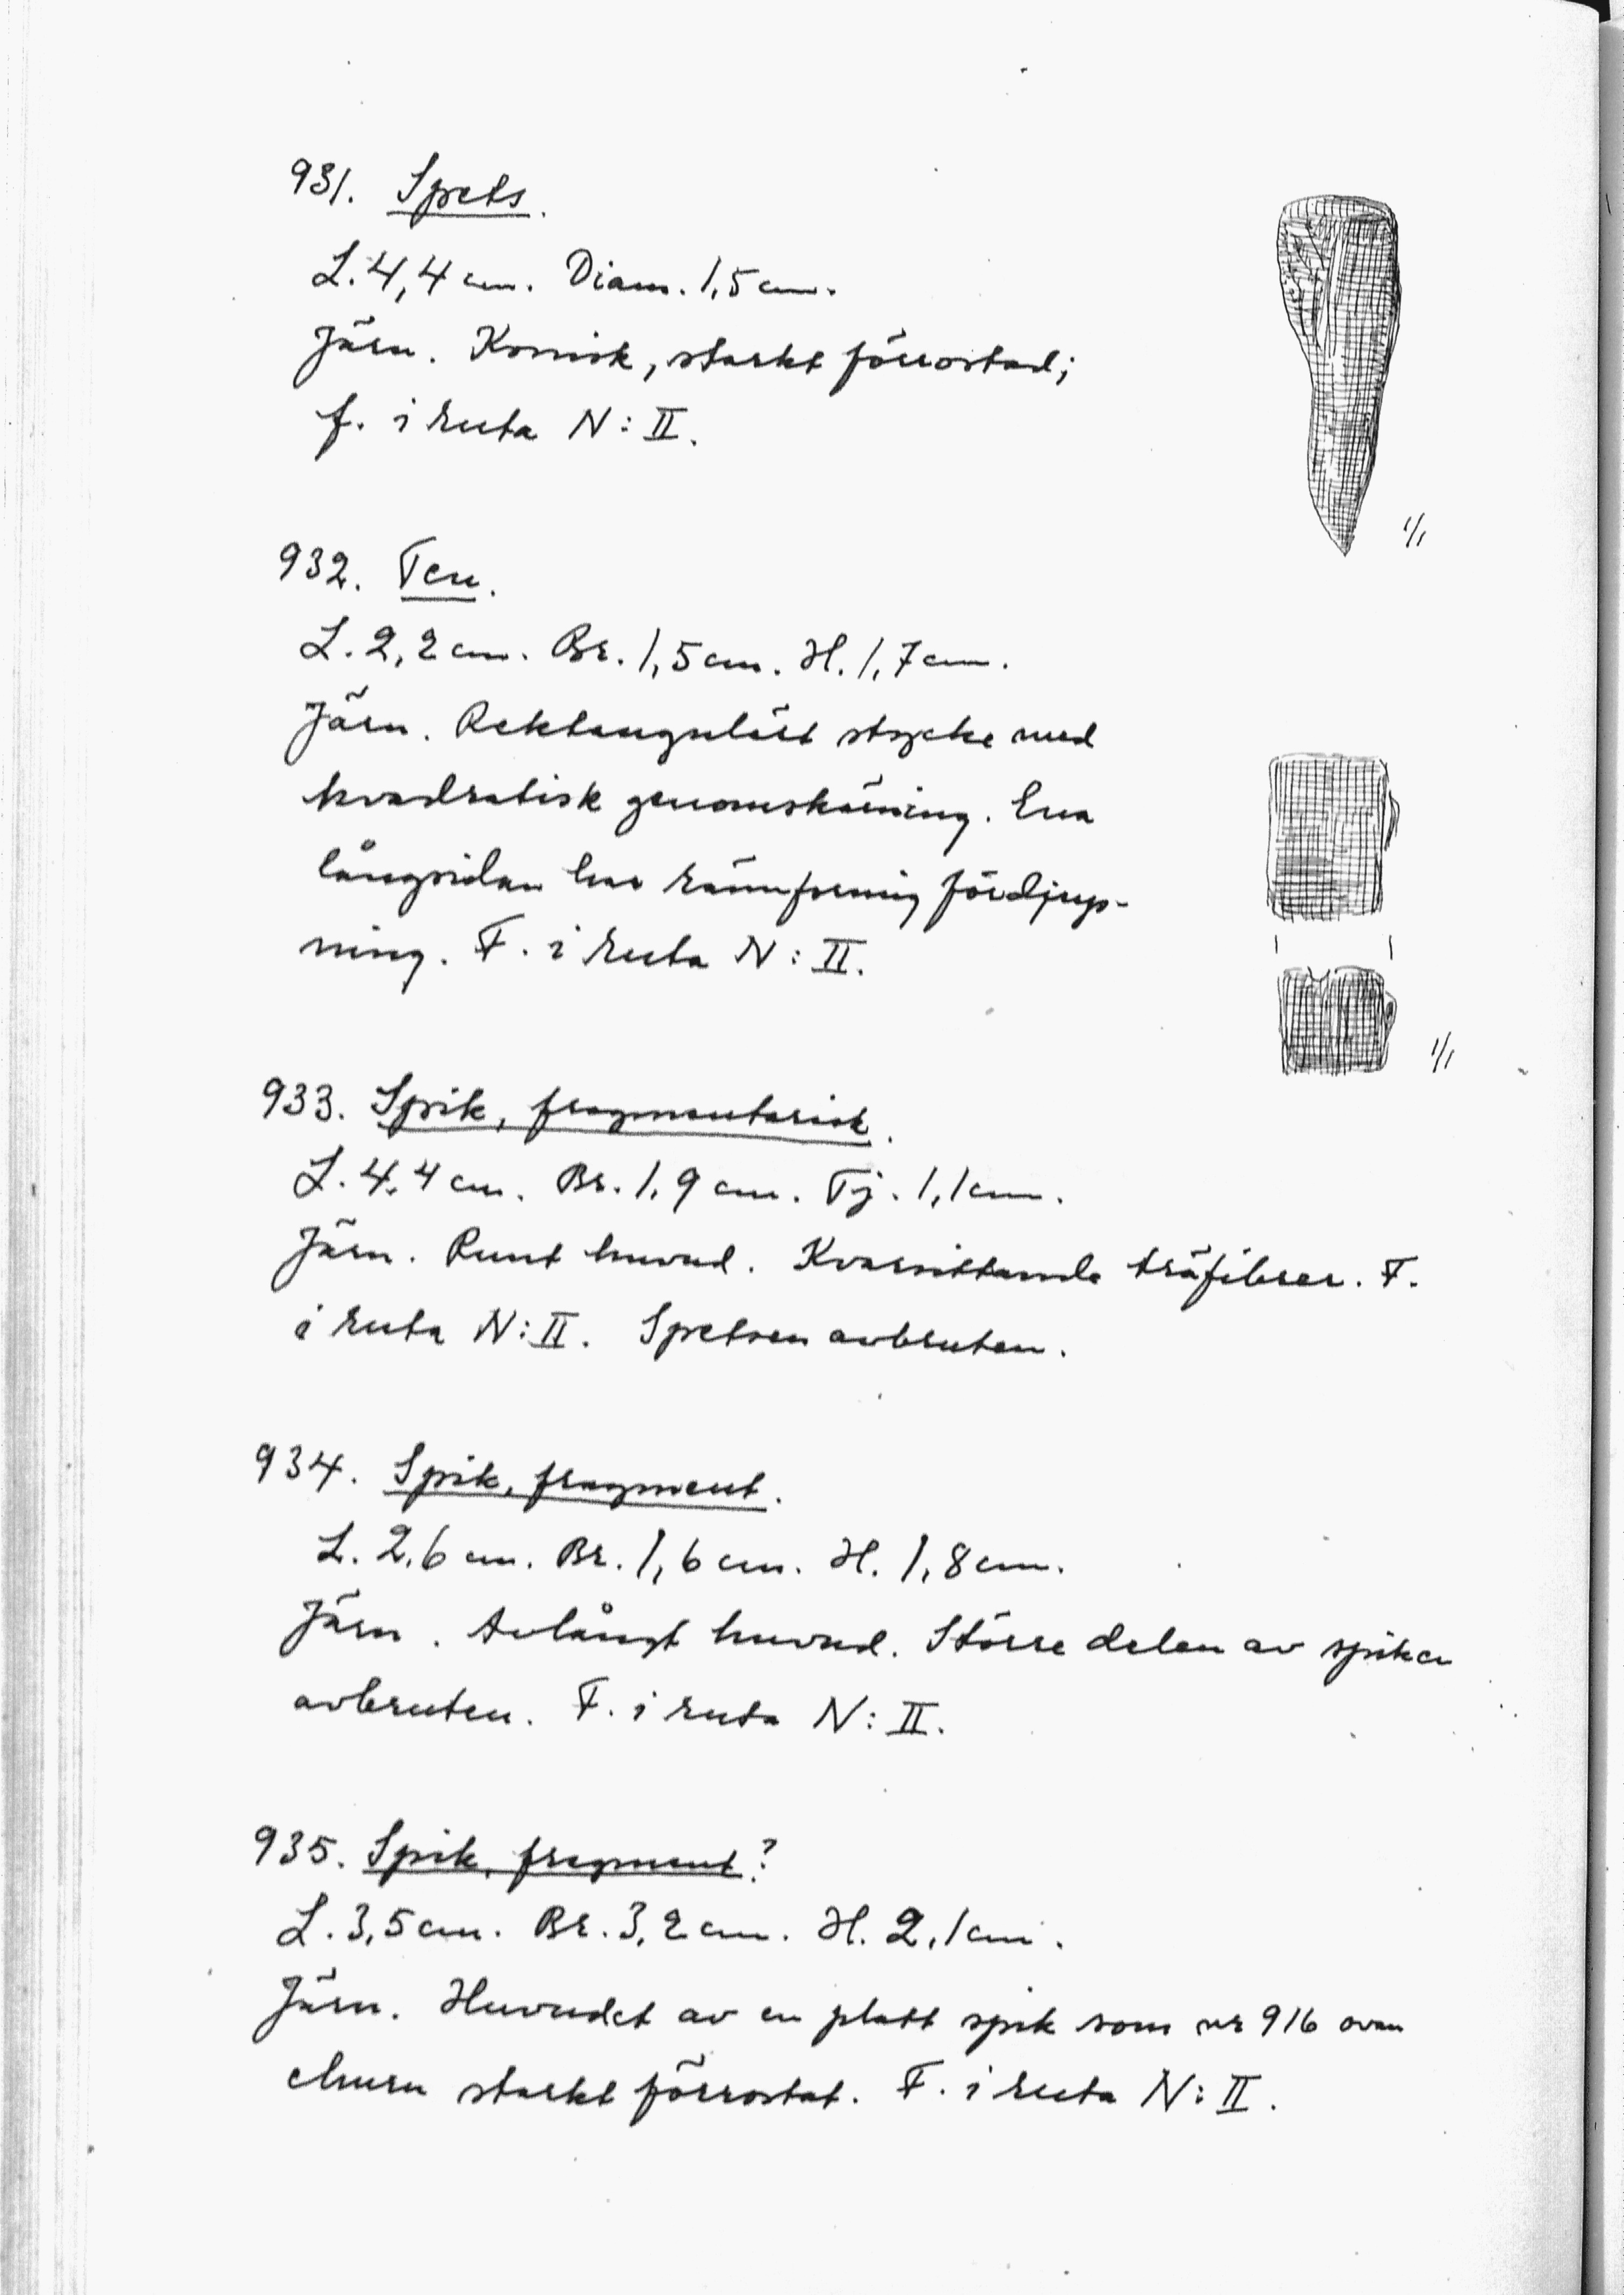 931. Spets.
L. 4,4 cm. Diam. 1,5 cm.
Järn. Konisk, starkt förrostad;
f. i ruta N: II.
1/1
932. Ten.
L. 2,2 cm. Br. 1,5 cm. H. 1,7 cm.
Järn. Rektangulärt stycke med
kvadratisk genomskärning. Ena
långsidan har rännformig fördjup-
ning. F. i ruta N: II.
1/1
933. Spik, fragmentarisk.
L. 4,4 cm. Br. 1,9 cm. Tj. 1,1 cm.
Järn. Runt huvud. Kvarsittande träfibrer. F.
i ruta N: II. Spetsen avbruten.
934. Spik, fragment.
L. 2,6 cm. Br. 1,6 cm. H. 1,8 cm.
Järn. Avlångt huvud. Större delen av spiken
avbruten. F. i ruta N: II.
935. Spik, fragment?
L. 3,5 cm. Br. 3,2 cm. H. 2,1 cm.
Järn. Huvudet av en platt spik som nr 916 ovan
ehuru starkt förrostat. F. i ruta N: II.